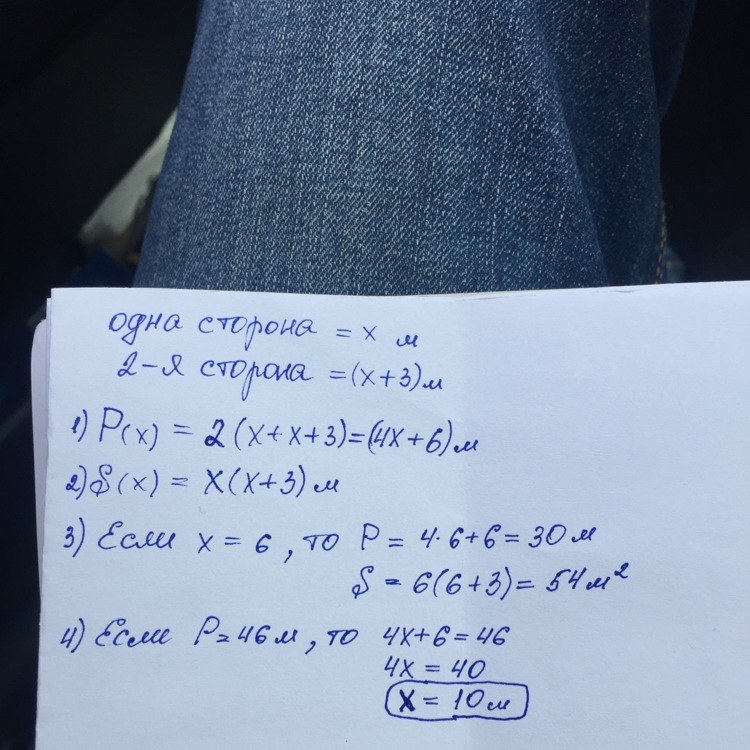 одна сторона = x м
2-я сторона = (x+3) м
1) P(x) = 2(x+x+3)=(4x+6) м
2) S(x) = x(x+3) м
3) Если x = 6, то P = 4·6+6=30 м
S = 6(6+3)= 54 м²
4) Если P=46 м, то 4x+6=46
4x = 40
x = 10 м